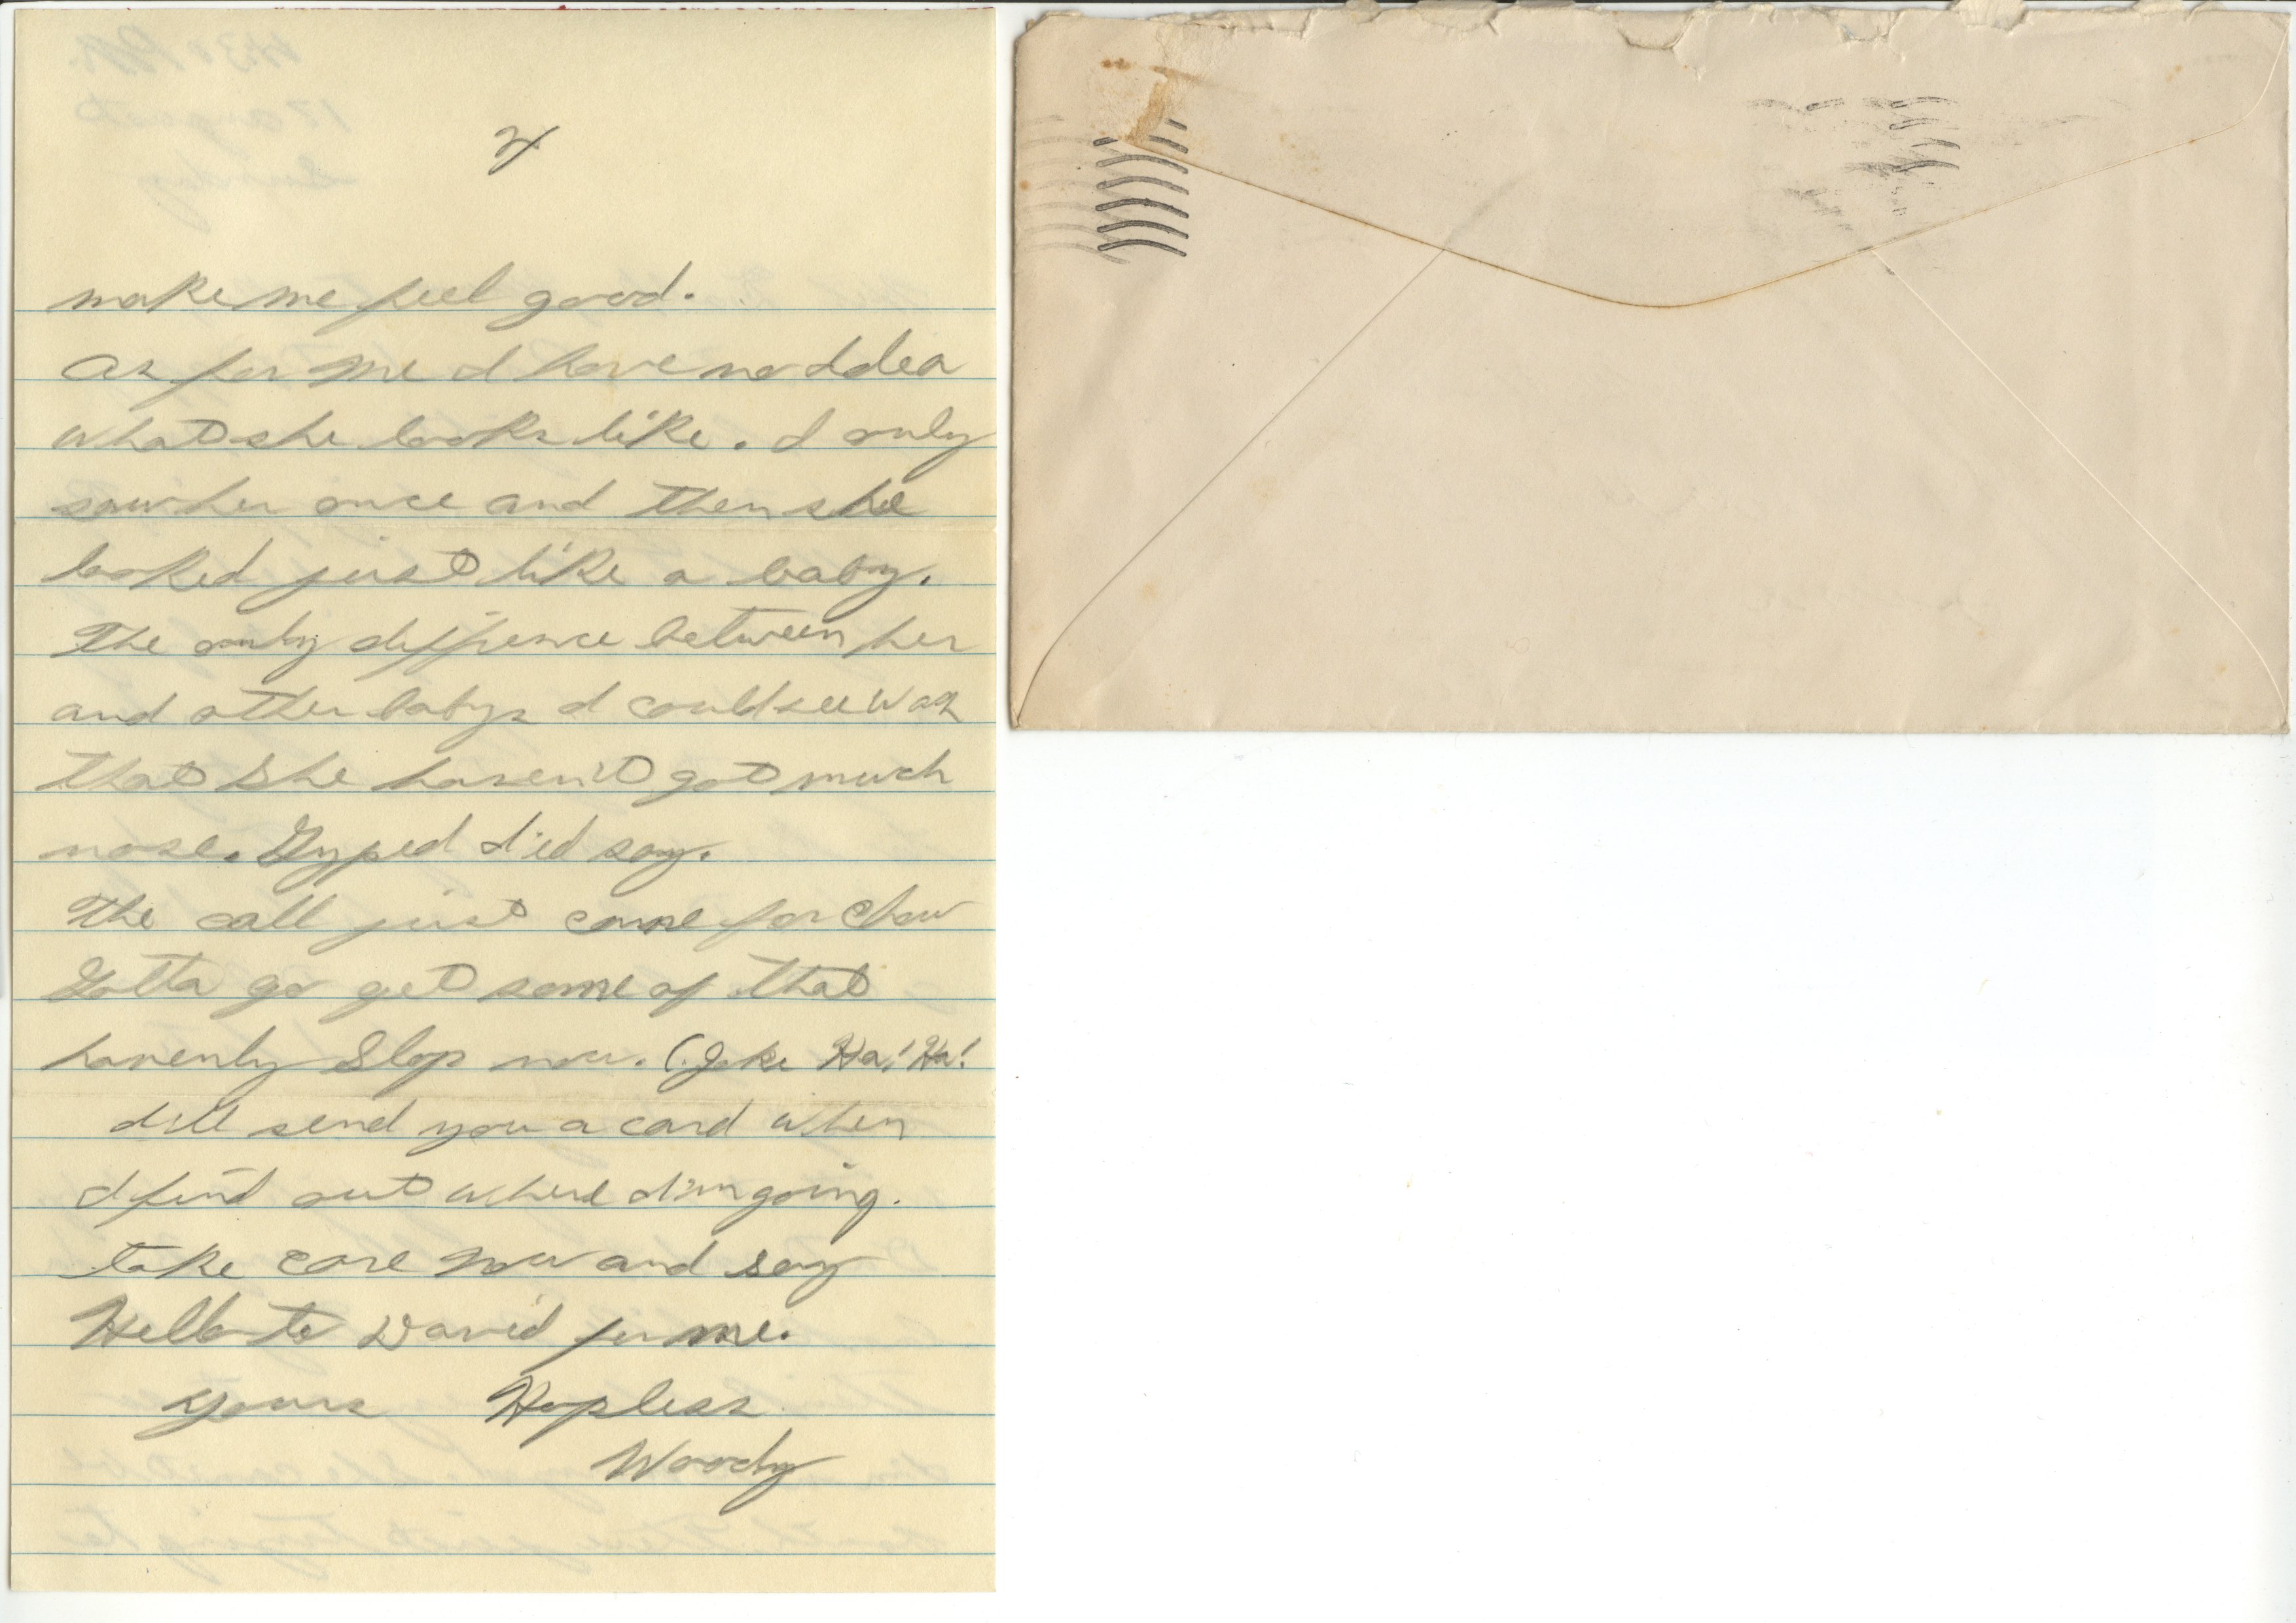 2
make me feel good.
As for me I have no Idea
what she looks like. I only
saw her once and then she
looked just like a baby.
The only diffrence between her
and other babys I could see was
that she haven't got much
nose. Gyped I'ed say.
The call just come for chow
Gotta go get some of that
havenly Slop now. (Joke Ha! Ha!
I'll send you a card when
I find out where I'm going.
take care now and say
Hello to David for me.
yours Hopless
Woody